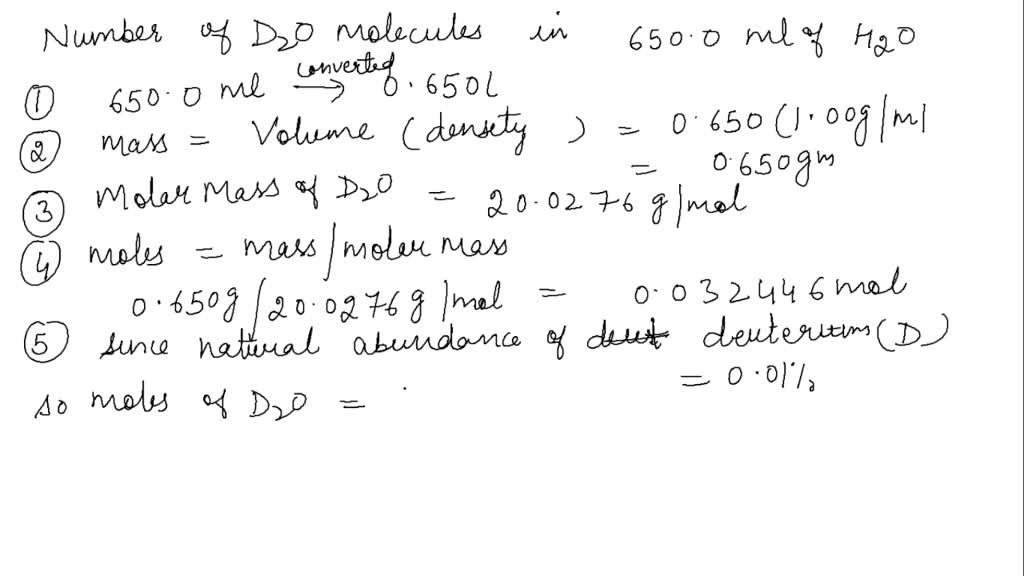 Number of D2O molecules in 650.0 ml of H2O
① 650.0 ml converted → 0.650L
② mass = Volume (densety) = 0.650 (1.00g/ml
= 0.650gm
③ Molar Mass of D2O = 20.0276 g/mol
④ moles = mass/molar mass
0.650g/20.0276g/mol = 0.032446 mol
⑤ since natural abundance of deuterium (D)
= 0.01%
so moles of D2O =